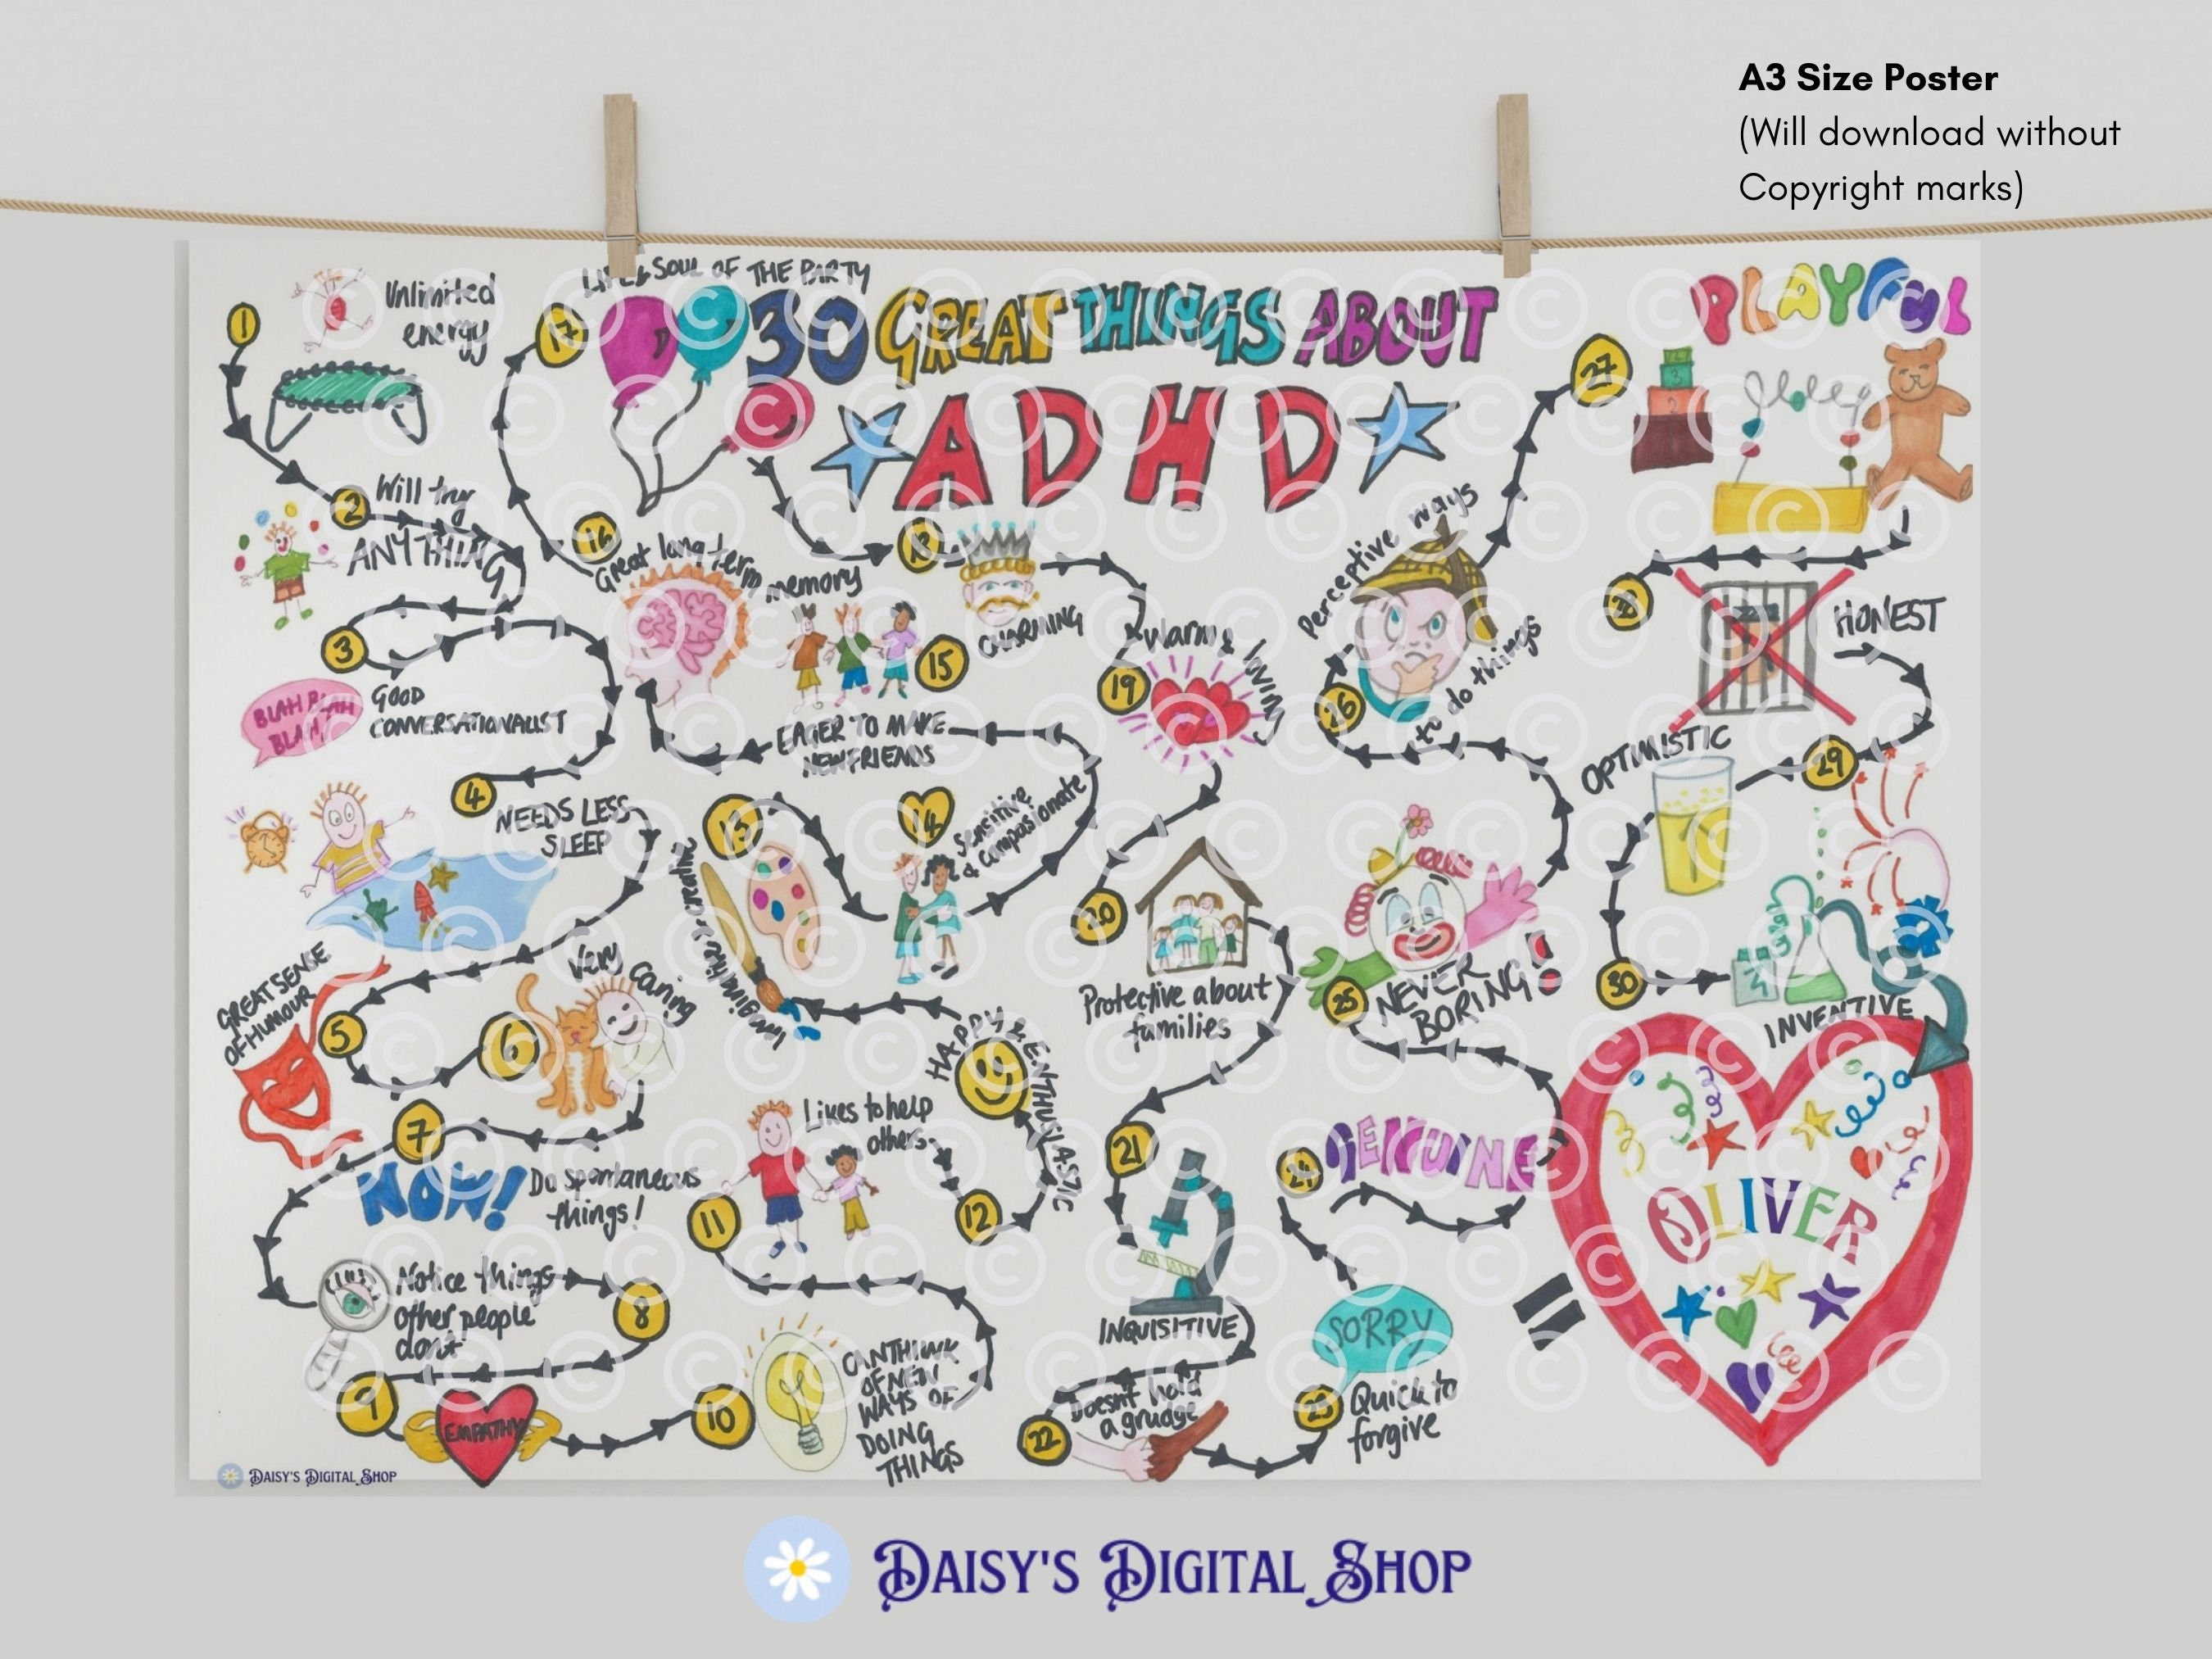 A3 Size Poster
(Will download without
Copyright marks)
30 GREAT THINGS ABOUT
ADHD
1
Unlimited
energy
2
Will try
ANYTHING
3
BLAH BLAH
BLAH
GOOD
CONVERSATIONALIST
4
NEEDS LESS
SLEEP
5
GREAT SENSE
OF HUMOUR
6
Very caring
7
NOW!
Do spontaneous
things!
8
Notice things
other people
dont!
9
EMPATHY
10
CAN THINK
OF NEW
WAYS OF
DOING
THINGS
11
Likes to help
others
12
HAPPY & ENTHUSIASTIC
13
Imaginative or creative
14
Sensitive
& compasionate
15
EAGER TO MAKE
NEW FRIENDS
16
Great long term memory
17
LIFE & SOUL OF THE PARTY
18
CHARMING
19
Warm & loving
20
Protective about
families
21
INQUISITIVE
22
Doesnt hold
a grudge
23
SORRY
Quick to
forgive
24
GENUINE
25
NEVER
BORING!
26
Perceptive ways
to do things
27
PLAYFUL
1
2
3
28
HONEST
29
OPTIMISTIC
30
INVENTIVE
=
OLIVER
DAISY'S DIGITAL SHOP
DAISY'S DIGITAL SHOP